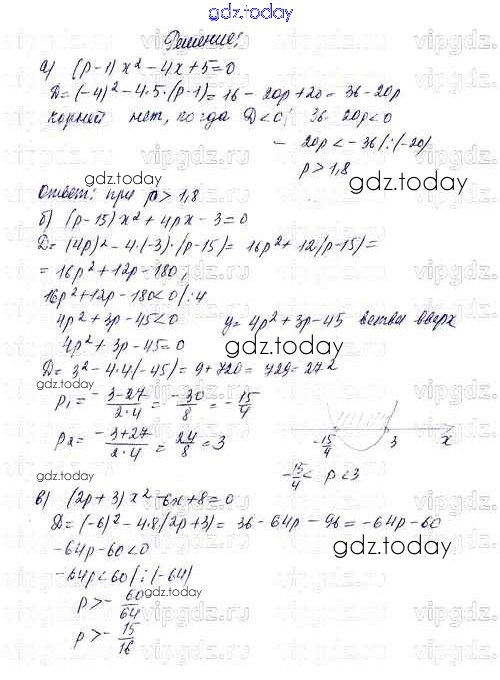 gdz.today
Решение:
а) (p-1)x² - 4x + 5 = 0
D = (-4)² - 4·5·(p-1) = 16 - 20p + 20 = 36 - 20p
корней нет, когда D < 0, 36 - 20p < 0
- 20p < - 36 |:(-20)
p > 1,8
gdz.today
Ответ: при p > 1,8
gdz.today
б) (p-15)x² + 4px - 3 = 0
D = (4p)² - 4·(-3)·(p-15) = 16p² + 12(p-15) =
= 16p² + 12p - 180,
16p² + 12p - 180 < 0 |:4
4p² + 3p - 45 < 0 y = 4p² + 3p - 45 ветви вверх
4p² + 3p - 45 = 0
gdz.today
D = 3² - 4·4(-45) = 9 + 720 = 729 = 27²
gdz.today
p₁ = -3-27/2·4 = -30/8 = -15/4
p₂ = -3+27/2·4 = 24/8 = 3
-15/4 3 x
-15/4 < p < 3
gdz.today
в) (2p+3)x² - 6x + 8 = 0
D = (-6)² - 4·8(2p+3) = 36 - 64p - 96 = -64p - 60
-64p - 60 < 0
gdz.today
-64p < 60 |:(-64)
p > - 60/64
p > - 15/16
gdz.today